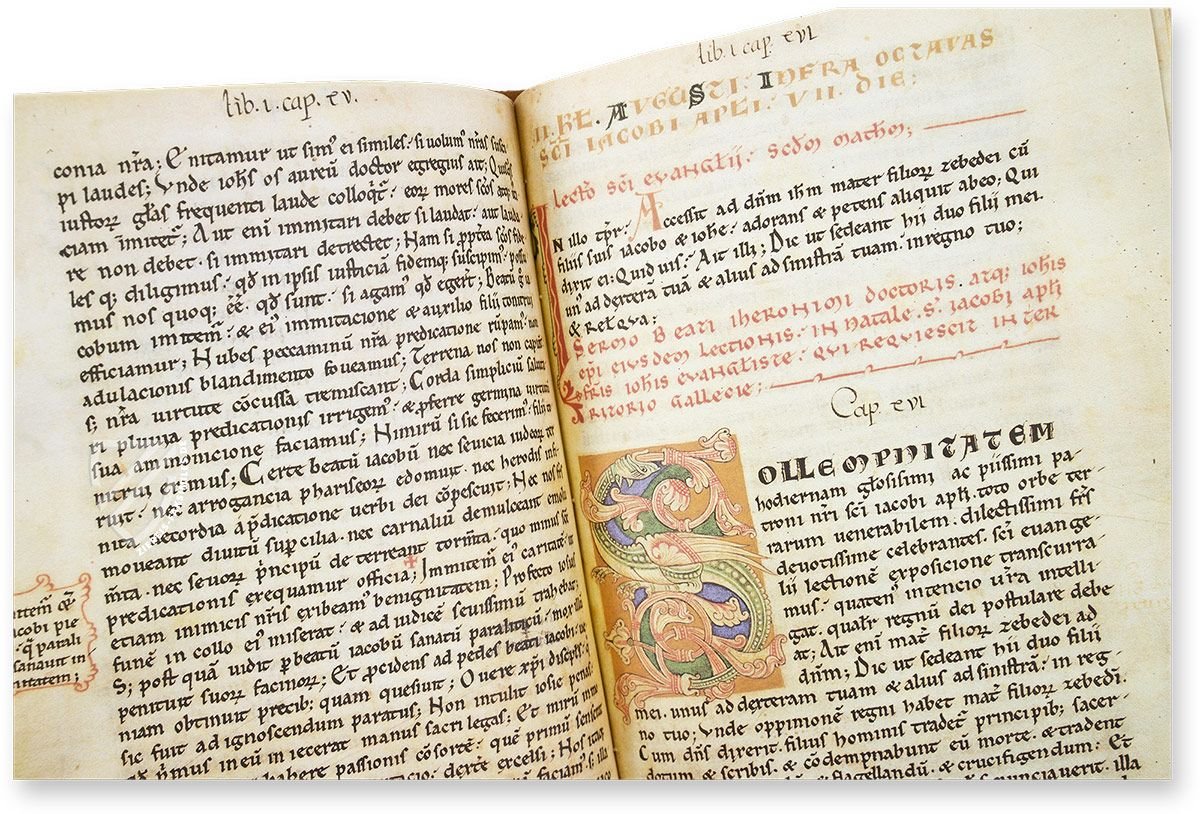 lib. 1. cap. xv.
conia nr̄a; Enitamur ut simꝰ ei similes· si volumꝰ nr̄as
pi laudes; Vnde ioħs os aureū doctor egregius ait;
iustorꝝ gl̄as frequenti laude colloqt̄· eorꝝ mores
ciam imitet̄; Aut enī immitari debet si laudat· aut
re non debet· si immitari detrectet; Nam si
les qꝫ diligimus· qđ in ipsis iusticiā fidemqꝫ suscipimꝰ·
mus nos quoqꝫ ēē· qđ sunt· si agamꝰ qđ egert̄; Beatū
cobum imitemꝰ· & eiꝰ immitacione & auxilio filii
efficiamur; Nubes peccaminū nr̄a predicatione
adulacionis blandimento foveamus; Terrena nos non
sꝫ nr̄a virtute cōcussa tremiscant; Corda simpliciū
ri pluvia predicationis irrigemꝰ· & ꝓferre germina
sua ammonicione faciamus; Nimirū si sic fecerimꝰ·
nitrui erimus; Certe beatū iacobū nec sevicia iudeorꝝ
ruit· nec arrogancia phariseorꝝ edomuit· nec herodis
cordia a p̄dicatione verbi dei cōpescuit; Nec nos
moveant divitū supercilia· nec carnaliū demulceant
m̄ta· nec sevorꝝ p̄ncipū deterreant torm̄ta· quo minus
predicationis exequamur officia; Immitemꝰ eiꝰ caritatē·
etiam inimicis nr̄is exibeamꝰ benignitatem; Profecto
funē in collo eiꝰ miserat· & ad iudicē sevissimū
S; postquā vidit p̄ beatū iacobū sanatū paraliticū· mox
penituit suorꝝ facinorꝝ; Et procidens ad pedes beati iacobi·
niam obtinuit precibꝫ quam quesiuit; O vere xp̄i
sic fuit ad ignoscendum paratus; Non intulit
niam in eū iniecerat manus sacri legas; Et mirū
habere passionis cōsortē· quē primū
iacobi pie
parali
sanavit in
lib. 1. cap. xvi
II. KL. AVGUSTI. INFRA OCTAVAS
SC̄I IACOBI APLI. VII. DIE:
Lectio sc̄i evanglii· Scdm Matħm;
IN illo tp̄r· Accessit ad dn̄m iħm mater filiorꝝ zebedei cū
filiis suis iacobo & ioħe· adorans & petens aliquit ab eo; Qui
dixit ei· Quid vis· Ait illi; Dic ut sedeant hii duo filii mei·
unꝰ ad dexterā tuā & alius ad sinistrā tuam· in regno tuo;
& Reliqua;
Sermo Beati Iheronimi doctoris· atqꝫ ioħis
ep̄i eiusdem lectionis· in natale· s̄· iacobi apłi
fr̄is ioħis evangliste· qui requiescit in ter-
ritorio Gallecie;
Cap. xvi
SOLLEMPNITATEM
hodiernam gl̄osissimi ac piissimi pa-
troni nr̄i sc̄i iacobi apłi· toto orbe ter-
rarum venerabilem· dilectissimi fr̄s
devotissime celebrantes· sc̄i euange-
lii lectionē exposicione transcurra-
mus· quatenꝰ intencio ur̄a intelli-
gat· qualit̄ regnū dei postulare debe
at; Ait enī mat̄ filiorꝝ zebedei ad
dn̄m; Dic ut sedeant hii duo filii
mei· unus ad dexteram tuam & alius ad sinistrā· in reg-
no tuo; Vnde oppinionē regni habet mat̄ filiorꝝ zebedei·
Cum dn̄s dixerit· filius hominis tradet̄ principibꝫ sacer-
dotum & scribis· & cōdempnabunt eū morte· & tradent
flagellandū· & crucifigendum· Et